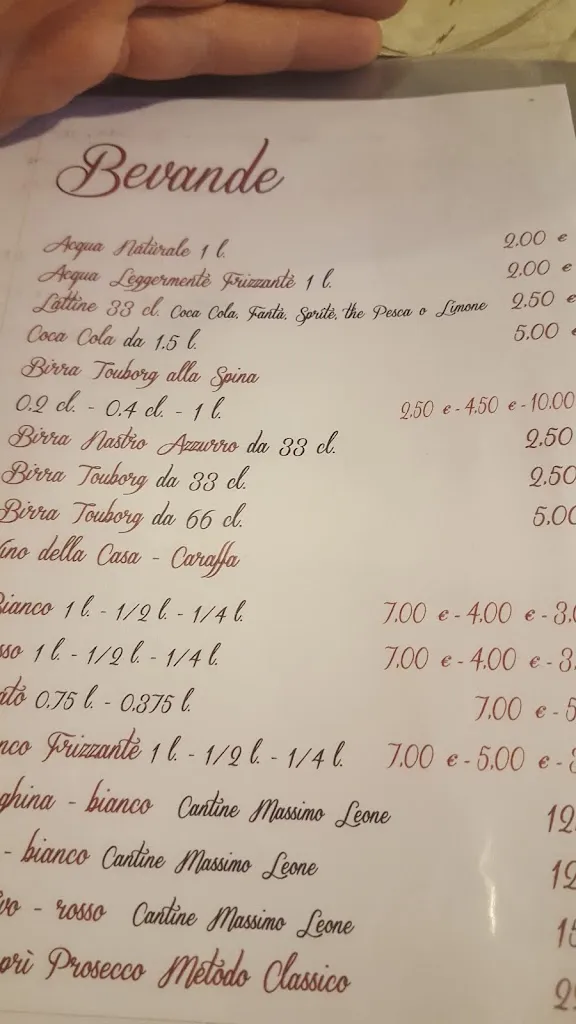 Bevande
Acqua Naturale 1 l. 2.00 €
Acqua Leggermente Frizzante 1 l. 2.00 €
Lattine 33 cl. Coca Cola, Fanta, Sprite, the Pesca o Limone 2.50 €
Coca Cola da 1.5 l. 5.00 €
Birra Touborg alla Spina
0.2 cl. - 0.4 cl. - 1 l. 2.50 € - 4.50 € - 10.00
Birra Nastro Azzurro da 33 cl. 2.50
Birra Touborg da 33 cl. 2.50
Birra Touborg da 66 cl. 5.00
Vino della Casa - Caraffa
Bianco 1 l. - 1/2 l. - 1/4 l. 7.00 € - 4.00 € - 3.0
sso 1 l. - 1/2 l. - 1/4 l. 7.00 € - 4.00 € - 3.
ato 0.75 l. - 0.375 l. 7.00 € - 5
nco Frizzante 1 l. - 1/2 l. - 1/4 l. 7.00 € - 5.00 € - 3
ghina - bianco Cantine Massimo Leone 12.
- bianco Cantine Massimo Leone 12
vo - rosso Cantine Massimo Leone 15
orì Prosecco Metodo Classico 2